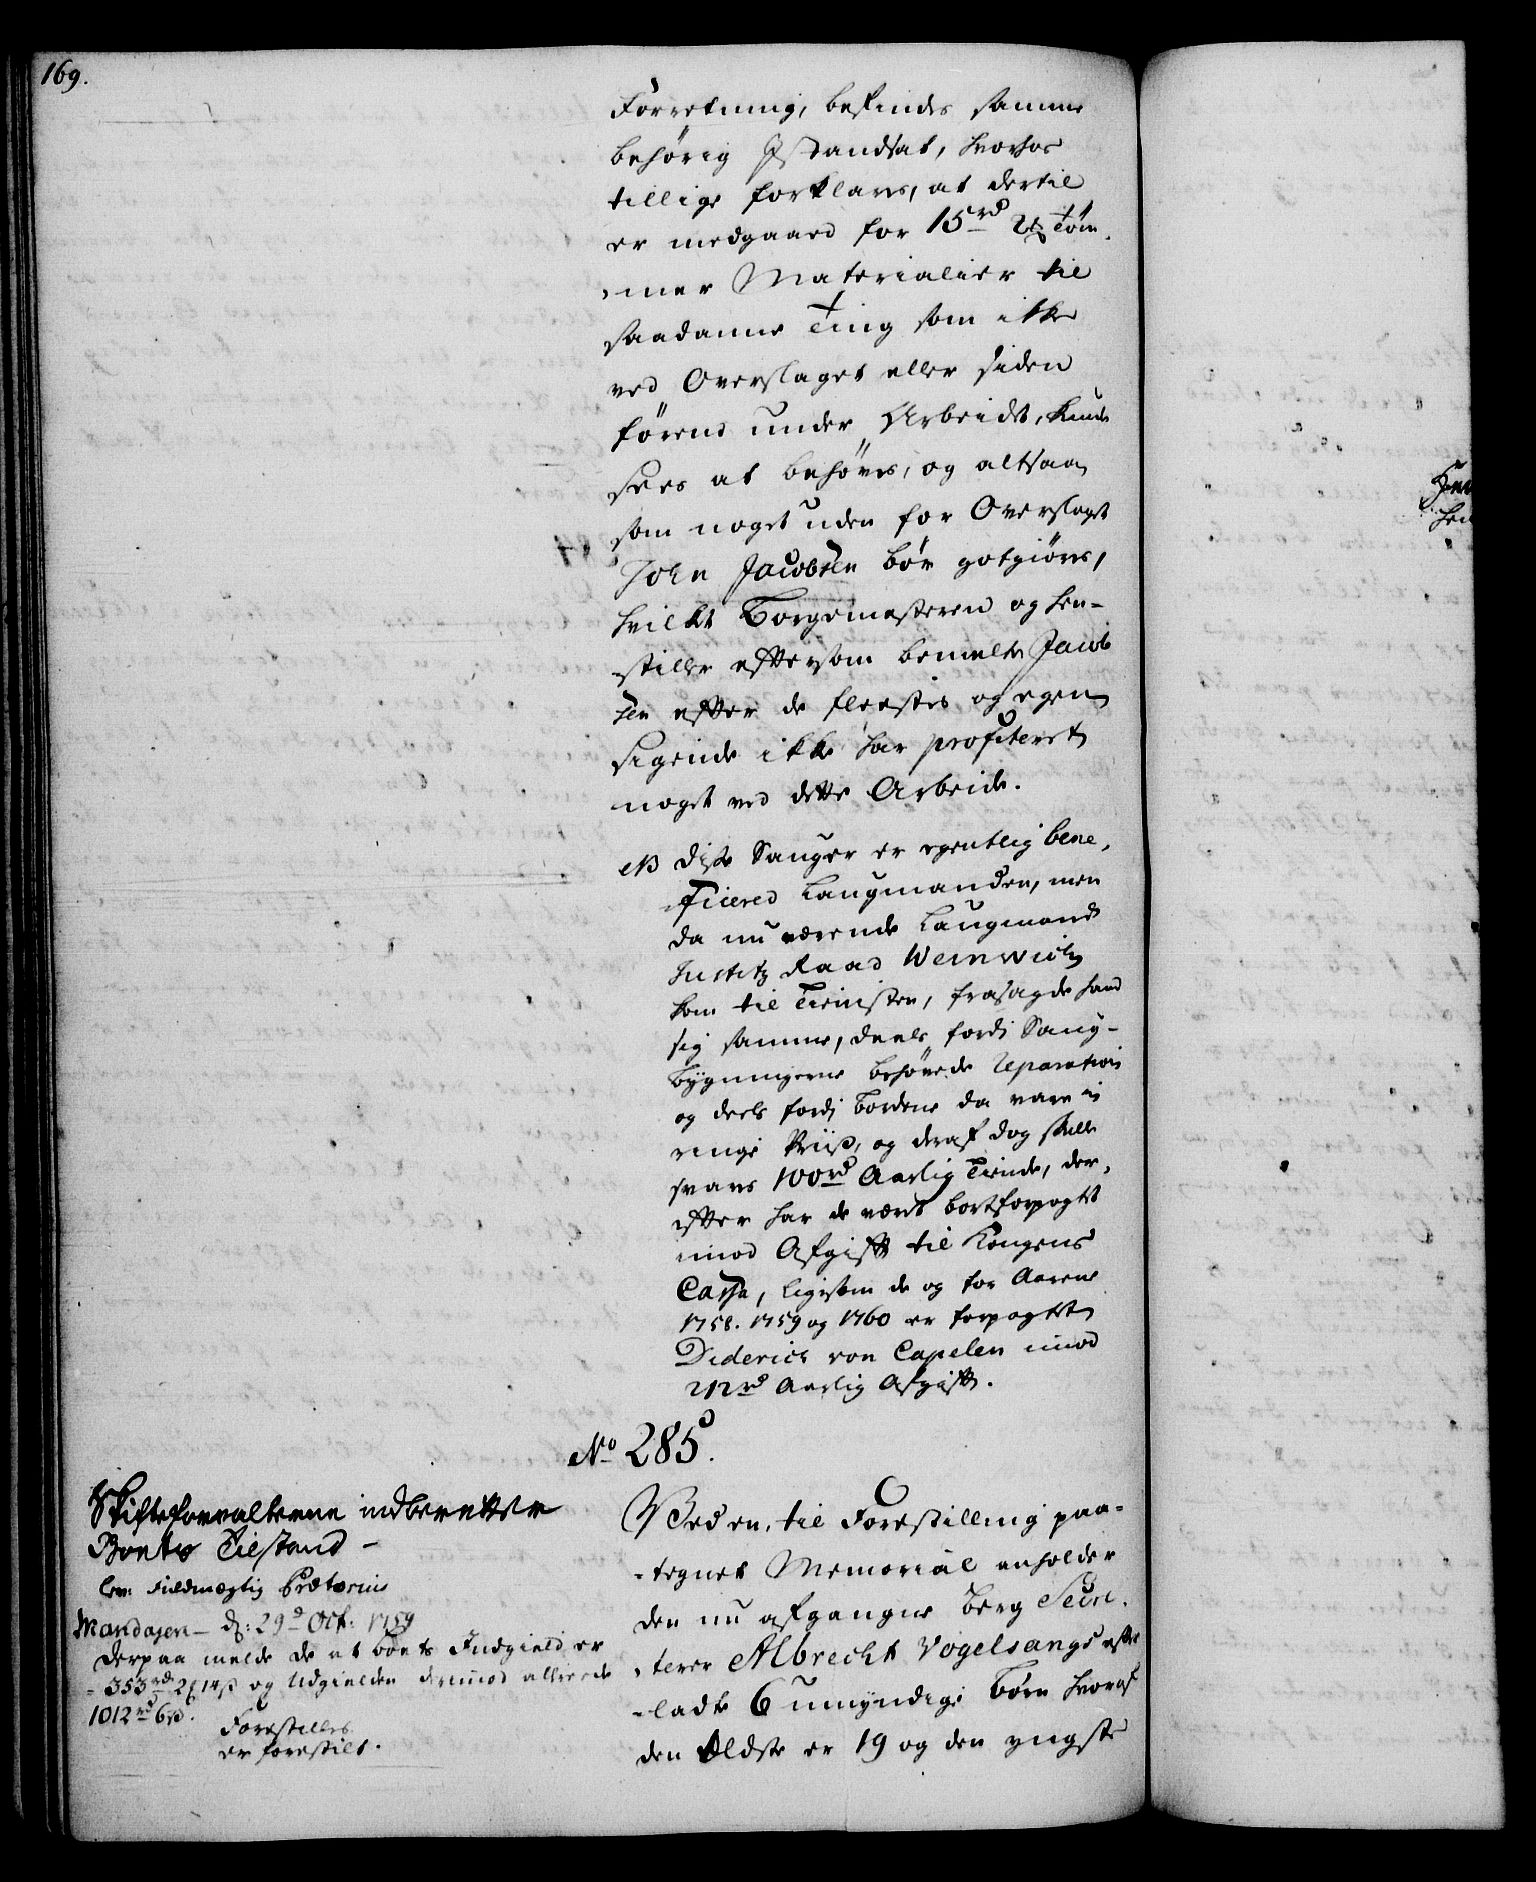 169.
Forretning, befindes samme
behørig Istandsat, hvorhos
tillige forklares, at dertil
er medgaaed for 15 rd 2 # Tøm-
mer Materialier til
saadanne Ting som ikke
ved Overslaget eller siden
førend under Arbeidet, kunde
sees at behøves, og altsaa
som noget uden for Overslaget
John Jacobsen bør gotgiøres,
hvilket Borgemesteren og hen-
stiller eftersom bemelte Jacob
sen efter de fleestes og egen
sigende ikke har profiteret
noget ved dette Arbeide.
NB disse Sauger er egentlig bene-
ficered Laugmanden, men
da nu værende Laugmand
Justitz Raad Weinwich
kom til Tienisten, frasagde hand
sig samme, deels fordi Saug-
bygningerne behøvede Reparation
og deels fordi Bordene da vare in
ringe Priis, og deraf dog skulle
svares 100 rd Aarlig Tiende, der-
efter har de været bortforpagtet
imod Afgift til Kongens
Cassa, ligesom de og for Aarene
1758. 1759 og 1760 er forpagtet
Diderich von Capelen imod
212 rd Aarlig Afgift.
No 285.
Skifteforvalterne indberetter
Boets Tilstand -
lev: Fuldmægtig Prætorius
Mandagen d: 29d Oct: 1759
Derpaa melde de at Boets Indgield er
353 rd 2 # 14 s og Udgielden derimod allerede
1012 rd 6 s.
Forestilles
er forestilt.
Ved en, til Forestilling paa-
tegnet Memorial anholder
den nu afgangne Berg Secre-
terer Albrecht Vogelsangs efter
ladte 6 umyndige Børn hvoraf
den Ældste er 19 og den yngste